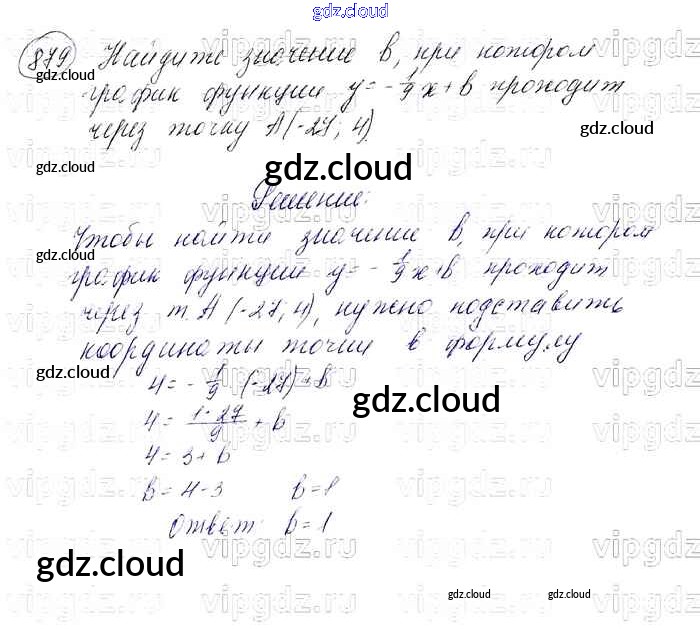 gdz.cloud
879 Найдите значение b, при котором
график функции y = -1/9 x + b проходит
через точку A(-27; 4).
Решение:
Чтобы найти значение b, при котором
график функции y = -1/9 x + b проходит
через т. A (-27; 4), нужно подставить
координаты точки в формулу
4 = -1/9 · (-27) + b
4 = 1·27/9 + b
4 = 3 + b
b = 4-3 b = 1
Ответ: b = 1
gdz.cloud
gdz.cloud
gdz.cloud
gdz.cloud
gdz.cloud
gdz.cloud
gdz.cloud
gdz.cloud
gdz.cloud
gdz.cloud
gdz.cloud
vipgdz.ru